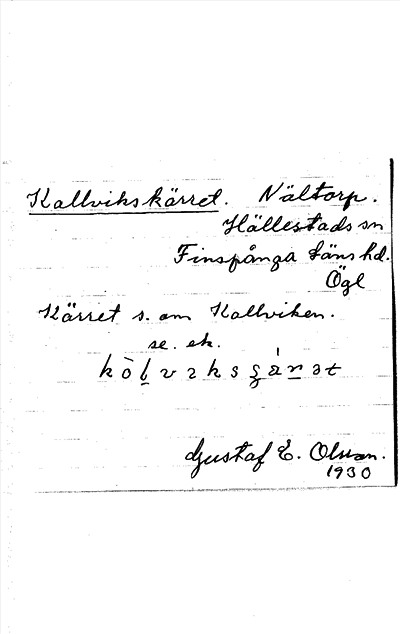 Kallvikskärret. Nältorp.
Hällestads sn
Finspånga läns hd.
Ögl
Kärret s. om Kallviken.
se. ek.
Gustaf E. Olsson.
1930